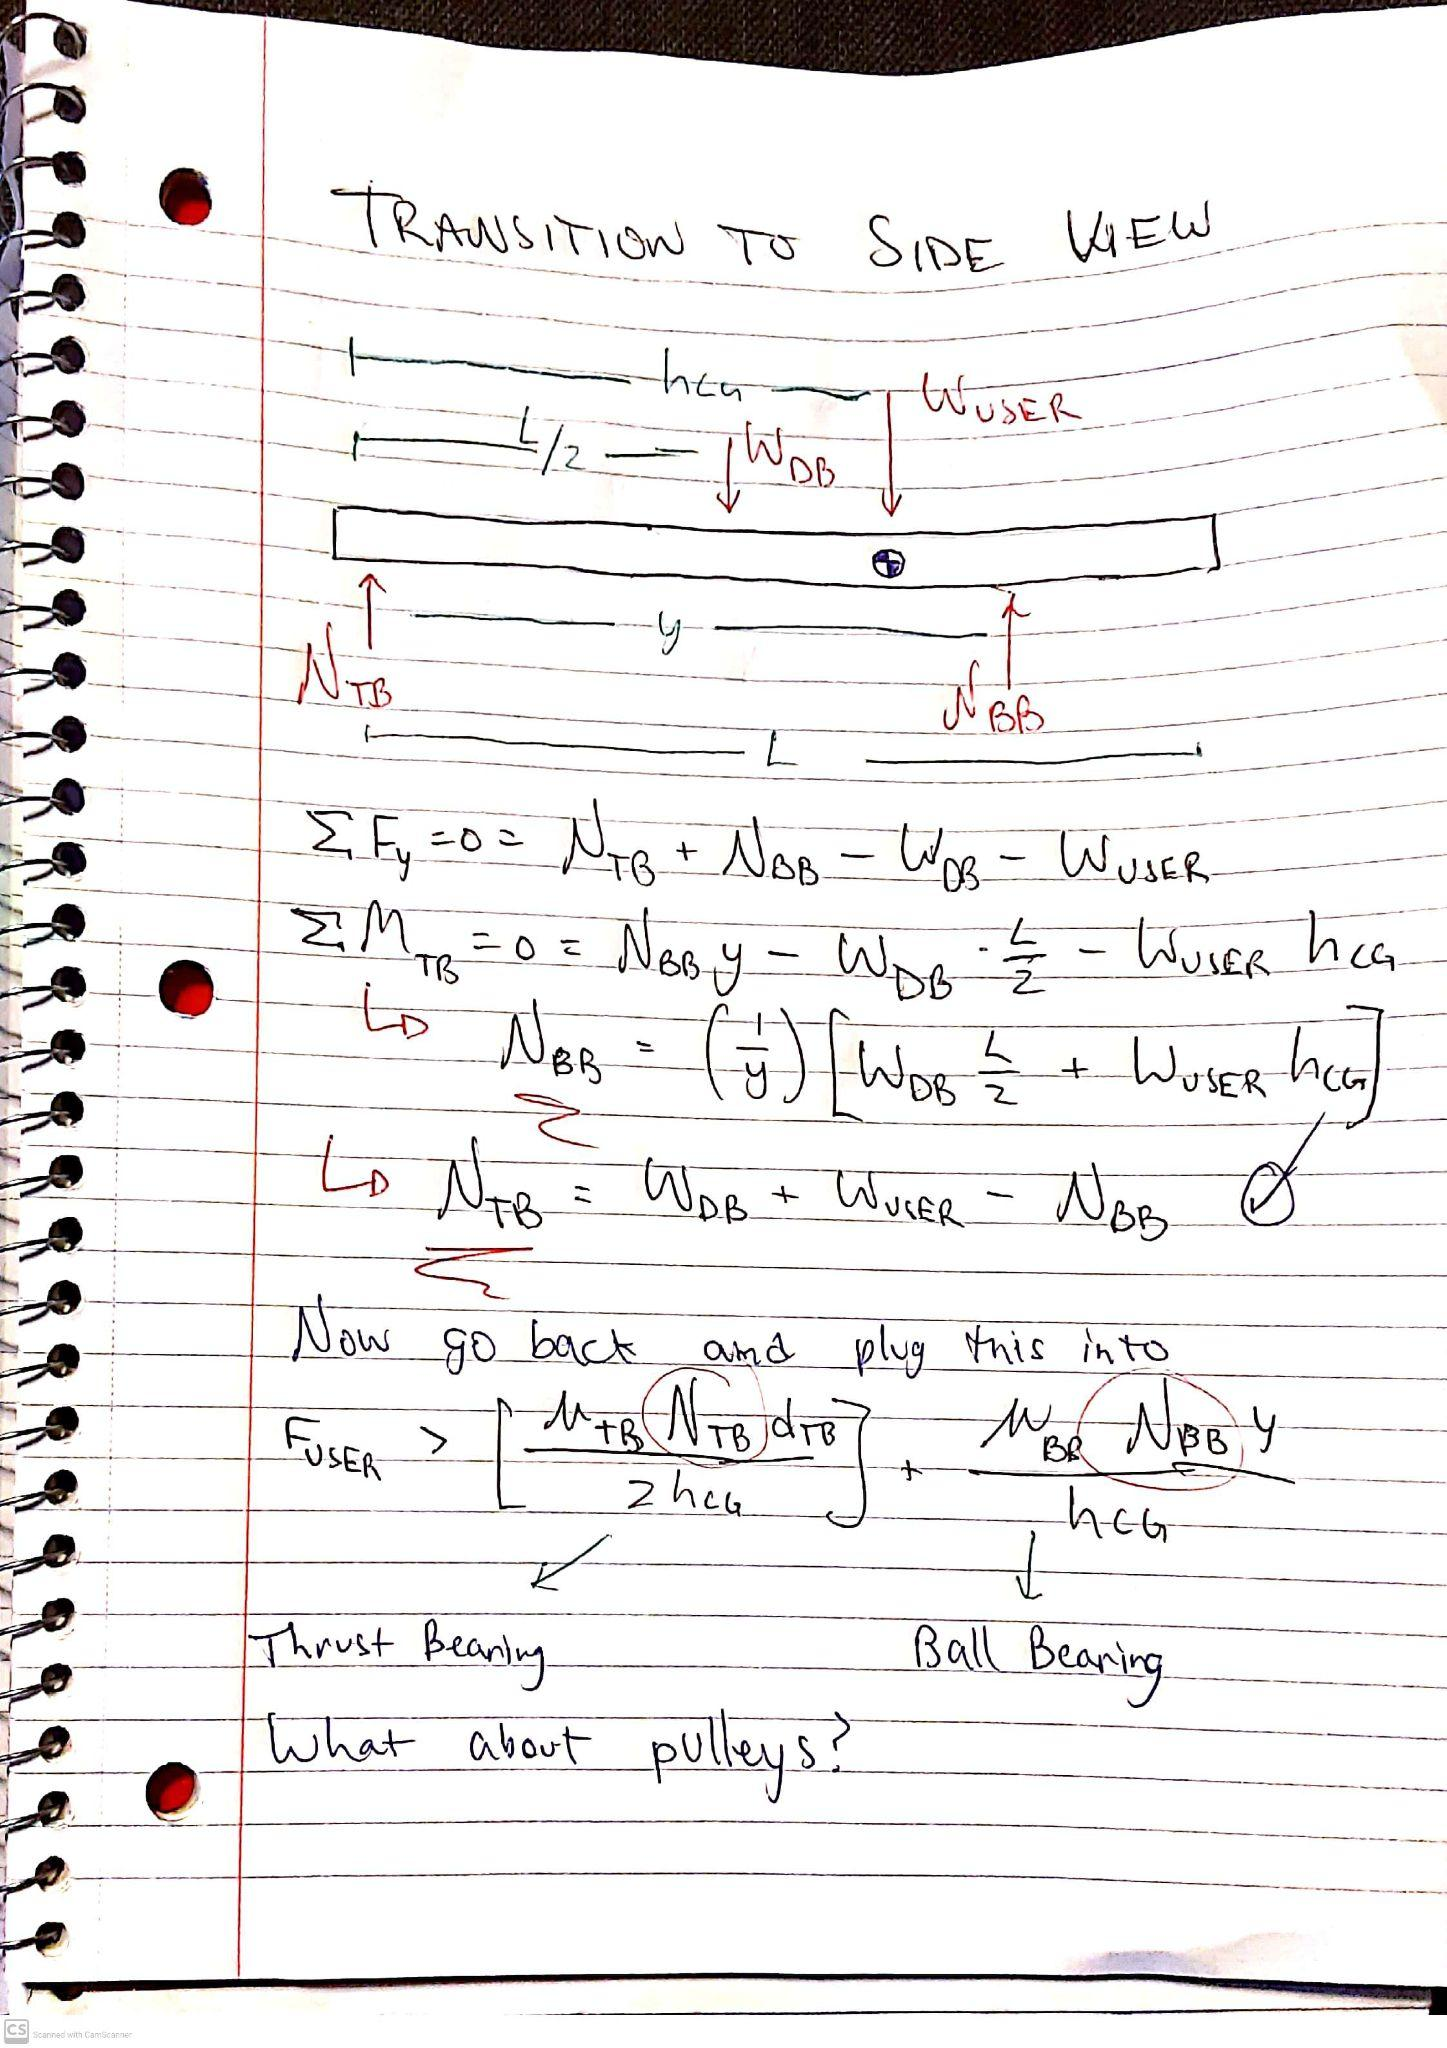 TRANSITION TO SIDE VIEW
hCG
WUSER
L/2
WDB
y
NTB
NBB
L
ΣFy = 0 = NTB + NBB - WDB - WUSER
ΣMTB = 0 = NBB y - WDB · L/2 - WUSER hCG
NBB = (1/y) [WDB L/2 + WUSER hCG]
NTB = WDB + WUSER - NBB ✓
Now go back and plug this into
FUSER > [μTB NTB dTB / 2 hCG] + μBB NBB y / hCG
Thrust Bearing
Ball Bearing
What about pulleys?
CS Scanned with CamScanner